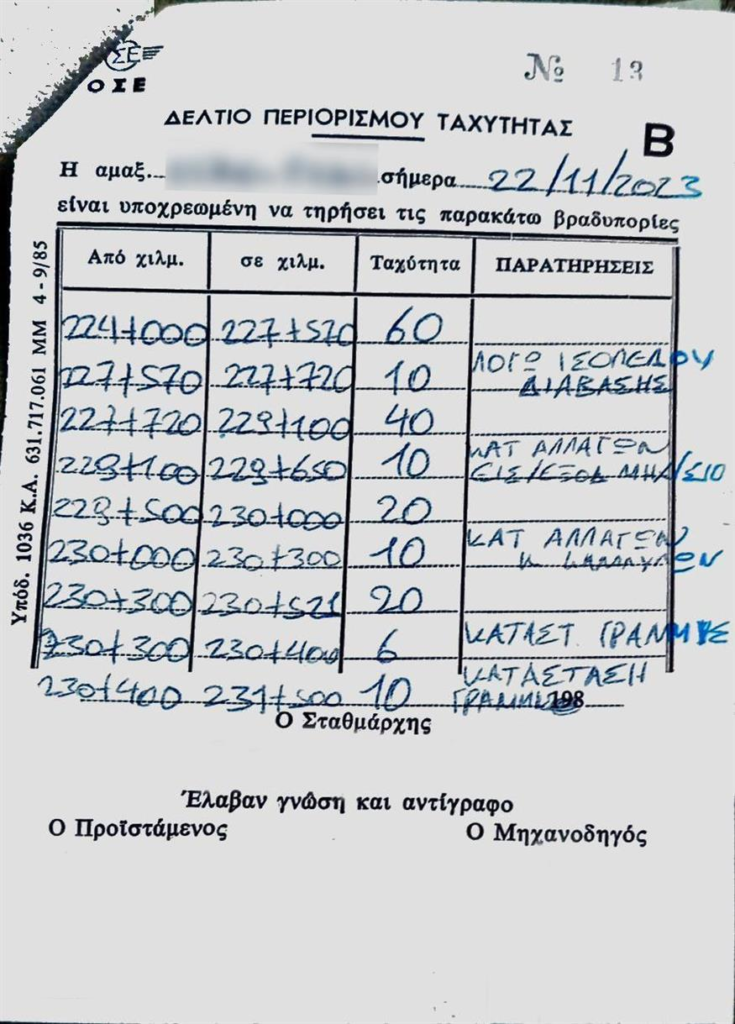 ΣΕ
ΟΣΕ
№ 13
ΔΕΛΤΙΟ ΠΕΡΙΟΡΙΣΜΟΥ ΤΑΧΥΤΗΤΑΣ
Β
Η αμαξ... σήμερα 22/11/2023
είναι υποχρεωμένη να τηρήσει τις παρακάτω βραδυπορίες
Από χιλμ. σε χιλμ. Ταχύτητα ΠΑΡΑΤΗΡΗΣΕΙΣ
224+000 227+570 60
227+570 227+720 10 ΛΟΓΩ ΙΣΟΠΕΔΟΥ ΔΙΑΒΑΣΗΣ
227+720 229+100 40
229+100 229+650 10 ΚΑΤ ΑΛΛΑΓΩΝ ΕΙΣ/ΕΞΟΔ ΜΗΧ/ΣΙΟ
229+500 230+000 20
230+000 230+300 10 ΚΑΤ ΑΛΛΑΓΩΝ Κ
230+300 230+521 20
230+300 230+400 6 ΚΑΤΑΣΤ. ΓΡΑΜΜΗΣ
230+400 231+500 10 ΚΑΤΑΣΤΑΣΗ ΓΡΑΜΜΗΣ 198
Ο Σταθμάρχης
Έλαβαν γνώση και αντίγραφο
Ο Προϊστάμενος Ο Μηχανοδηγός
Υπόδ. 1036 Κ.Α. 631.717.061 ΜΜ 4-9/85